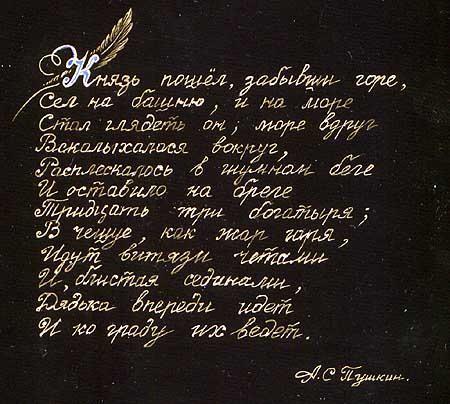 Князь пошёл, забывши горе,
Сел на башню, и на море
Стал глядеть он; море вдруг
Всколыхалося вокруг,
Расплескалось в шумном беге
И оставило на бреге
Тридцать три богатыря;
В чешуе, как жар горя,
Идут витязи четами
И, блистая сединами,
Дядька впереди идет
И ко граду их ведет.
А.С Пушкин.